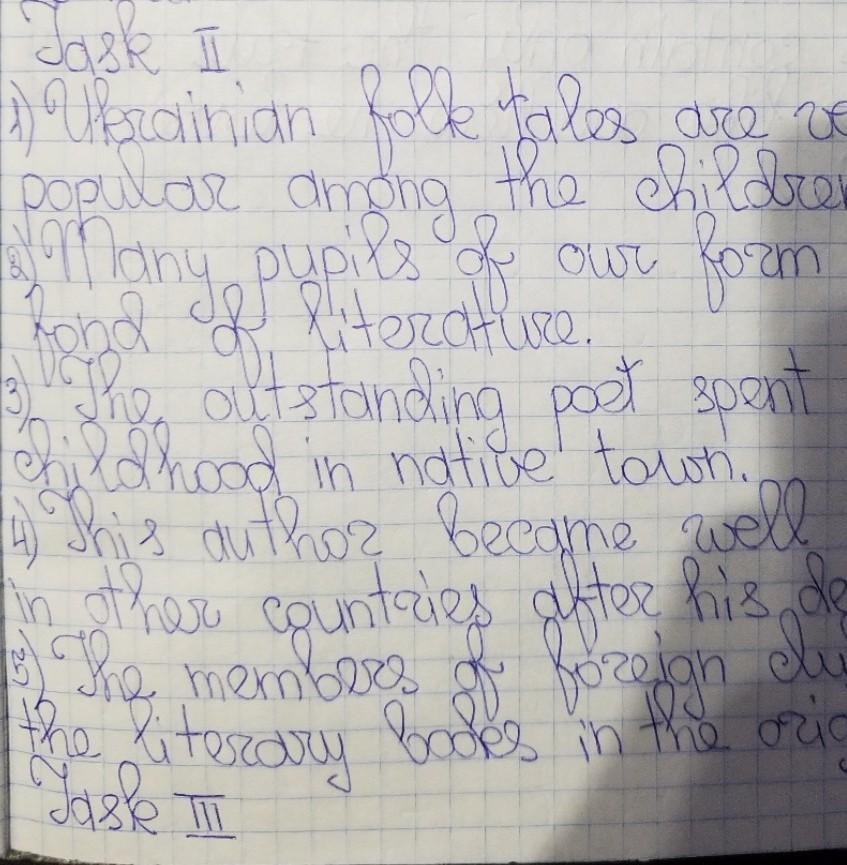 Task II
1) Ukrainian folk tales are
popular among the
2) Many pupils of our form
fond of literature.
3) The outstanding poet spent
childhood in native town.
4) This author became well
in other countries after his
5) The members of foreign
the literary books in the
Task III